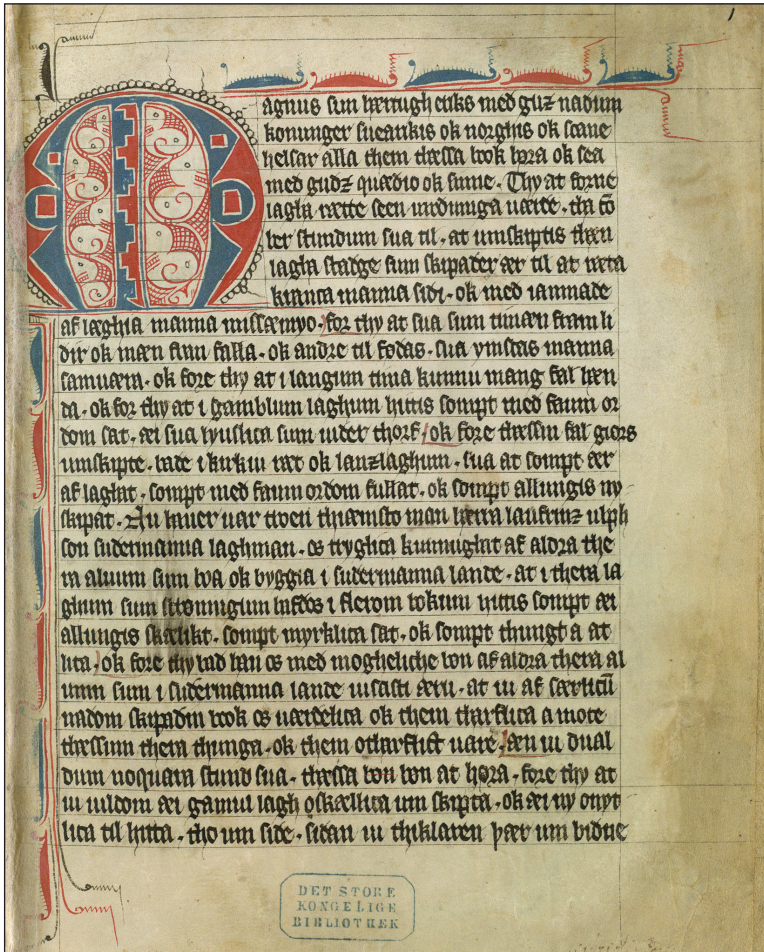 1
Magnus sun hærtugh eriks med guz nadum
konunger suearikis ok norghis ok scane
helsar alla them thæssa book høra ok sea
med gudz quædio ok sinne. Thy at forne
lagha rætte seen
ber stundum sua til. at umskiptis thæn
lagha stadge sum skipader ær til at ræta
kranca manna sidi. ok med iamnade
af læghia manna missæmyo. for thy at sua sum timæn fram li
dir ok mæn fran falla. ok andre til fødas. sua
samuæra. ok fore thy at i langum tima kunnu mang fal hæn
da. ok for thy at i gamblum laghum hittis sompt med faum or
dom sat. æi sua liuslica sum uider thorf. ok fore thæssin fal giørs
umskipte. bade i kirkiu ræt ok lanzlaghum. sua at sompt ær
af laght. sompt med faum ordom fullat. ok sompt allungis ny
skipat. Nu hauer uar troen thiænisto man hærra laurinz ulph
son sudermanna laghman. os tryghlica kunnught af aldra the
ra aluum sum boa ok byggia i sudermanna lande. at i thera la
ghum sum i flerom bokum hittis sompt æi
allungis skælikt. sompt myrklica sat. ok sompt thungt a at
lita. ok fore thy bad han os med mogheliche bøn af aldra thera al
uum sum i sudermanna lande uisasti æru. at ui af særlicū
nadom skipadin book os uærdelica ok them tharflica a mote
thæssum thera thunga. ok them otharflict uare. æn ui dual
dum noquara stund sua. thæssa bøn at høra. fore thy at
ui uildom æi gamul lagh oskællica um skipta. ok æi ny onyt
lica til hitta. tho um side. sidan ui thiklaren þær um bidne
DET STORE
KONGELIGE
BIBLIOTHEK